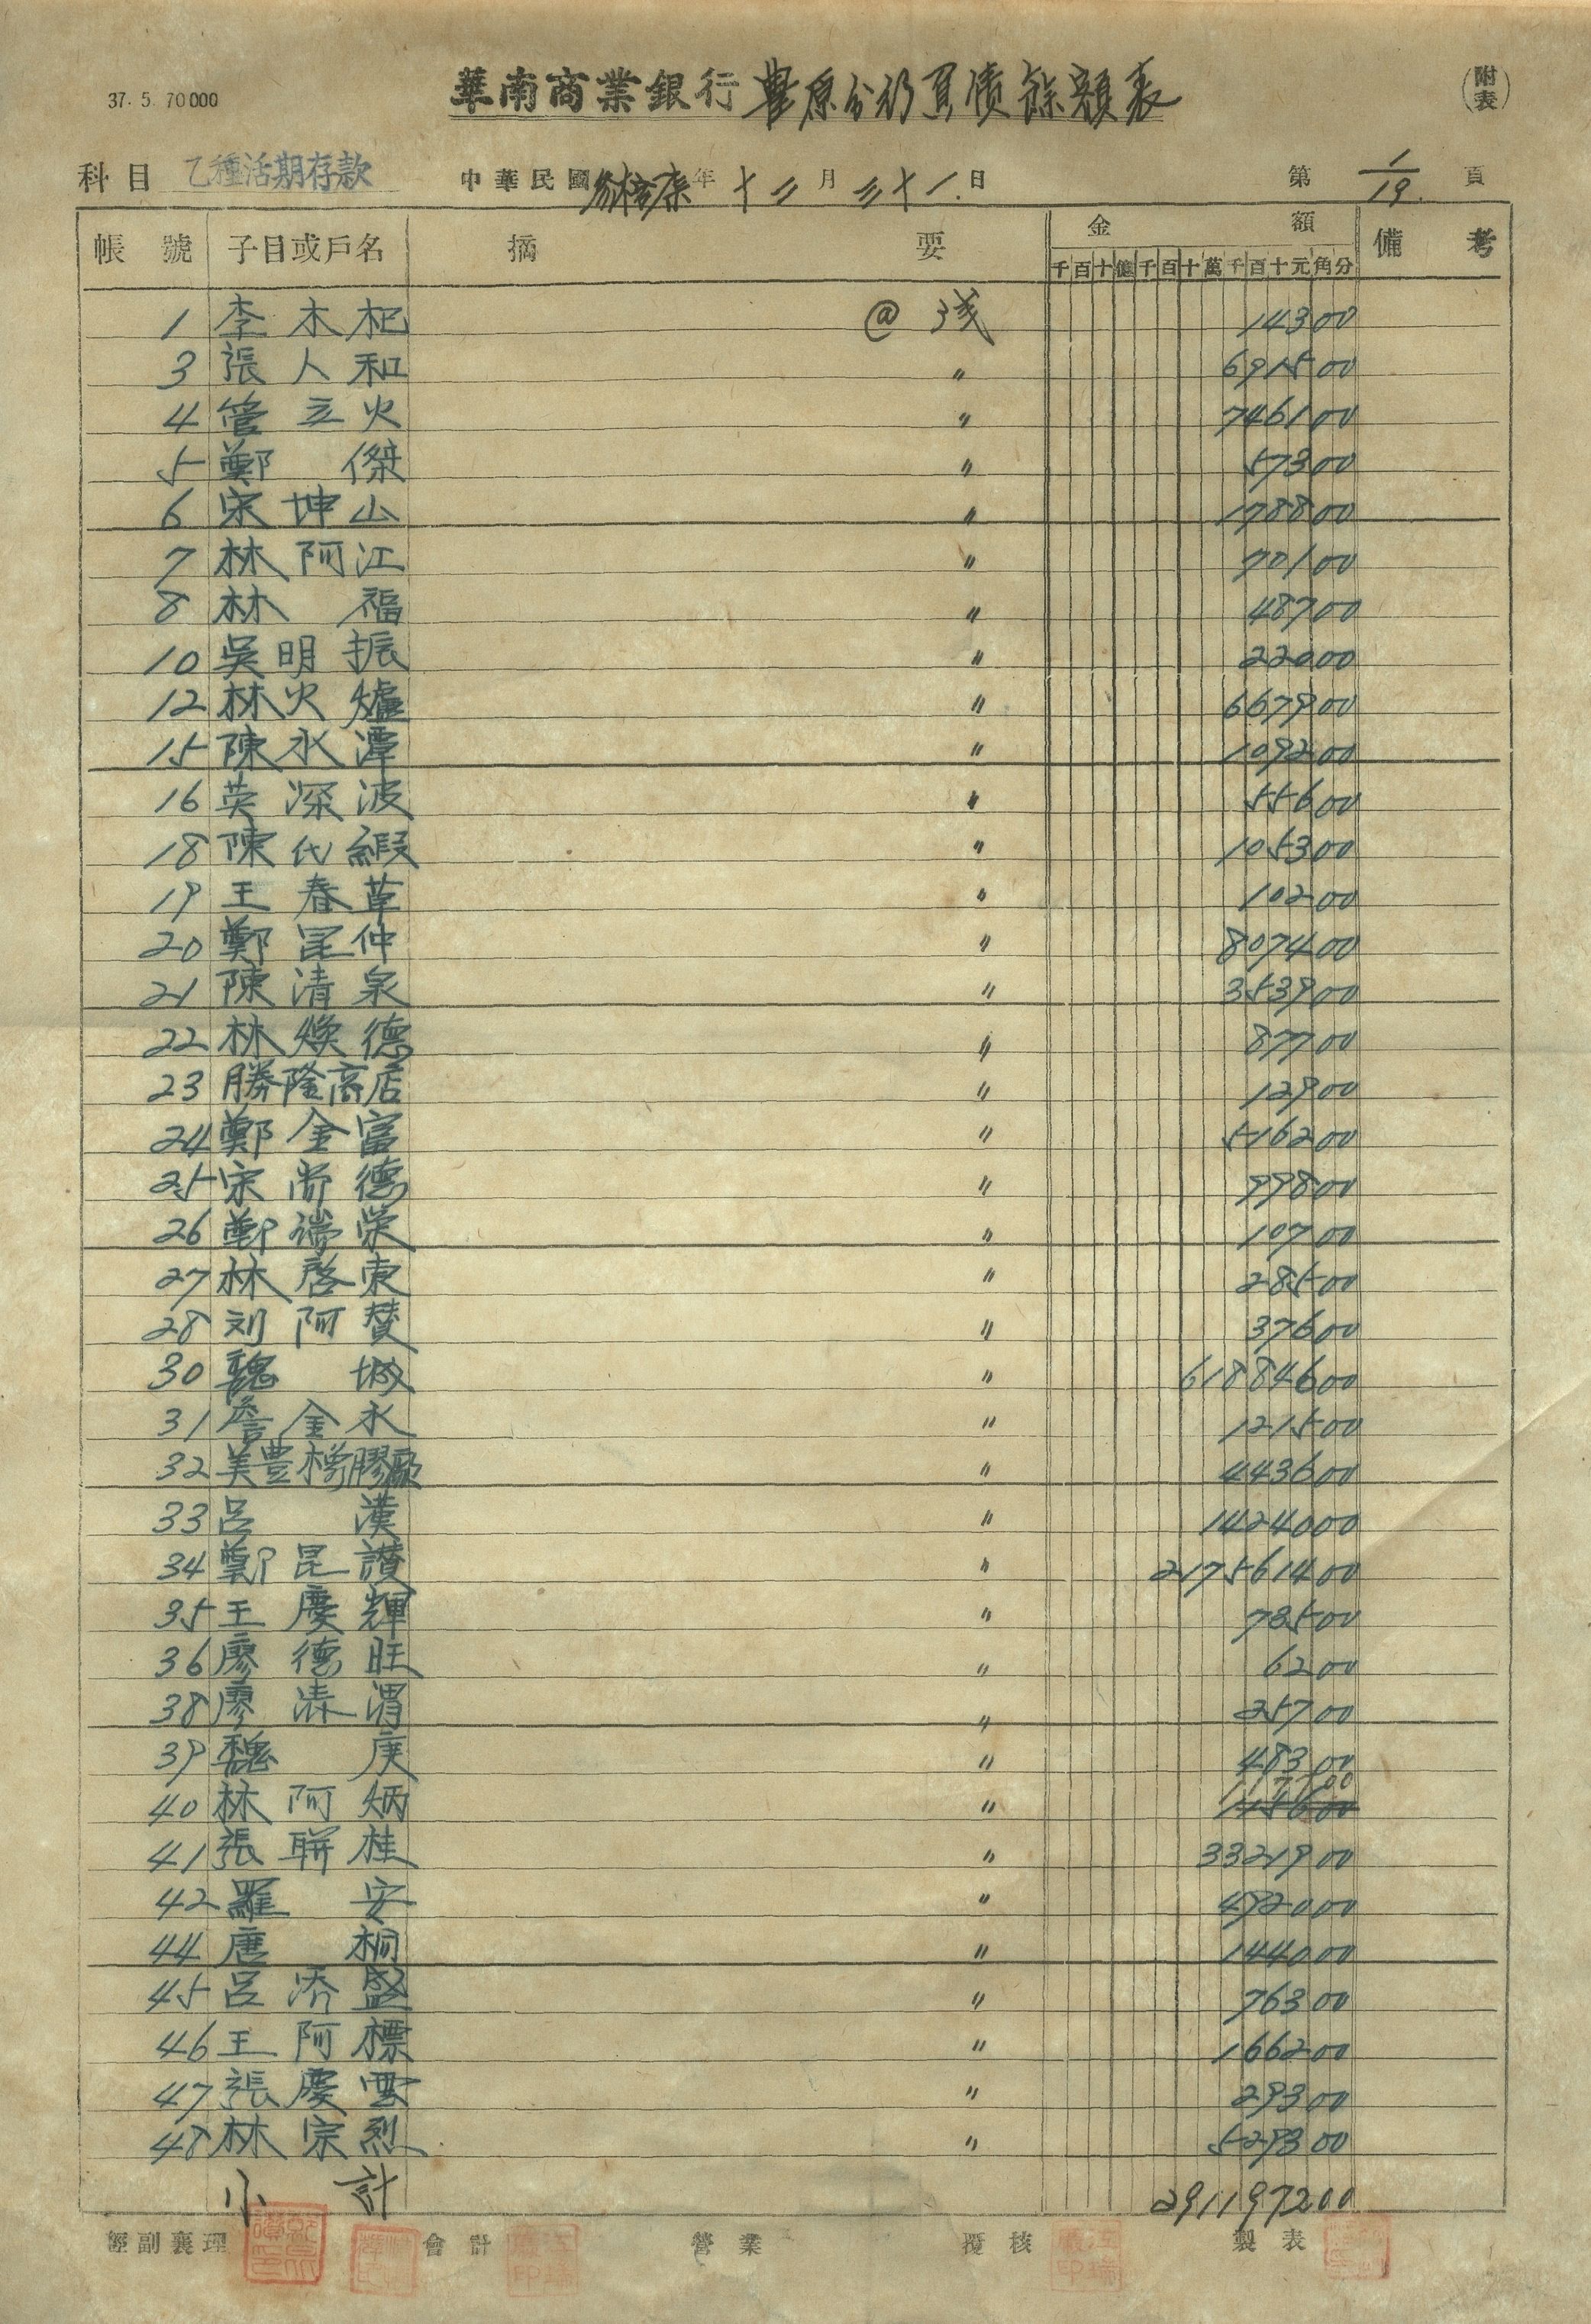 37. 5. 70000
華南商業銀行豐原分行負債餘額表
(附表)
科目 乙種活期存款 中華民國 年十二月三十一日 第1/19頁
帳號 子目或戶名 摘要 金額 備考
千百十億千百十萬千百十元角分
1 李木杞 @ 14300
3 張人和 〃 691500
4 管立火 〃 746100
5 鄭傑 〃 57300
6 宋坤山 〃 178800
7 林阿江 〃 70100
8 林福 〃 48700
10 吳明振 〃 22000
12 林火爐 〃 667900
15 陳水潭 〃 109200
16 英深波 〃 55600
18 陳氏緞 〃 105300
19 王春草 〃 10200
20 鄭昆仲 〃 807400
21 陳清泉 〃 353900
22 林煥德 〃 87700
23 勝隆商店 〃 12900
24 鄭金富 〃 516200
25 宋尚德 〃 99800
26 鄭瑞榮 〃 10700
27 林啓東 〃 28500
28 刘阿賛 〃 37600
30 魏城 〃 61884600
31 詹金水 〃 121500
32 美豐橡膠廠 〃 443600
33 呂漢 〃 1424000
34 鄭昆讃 〃 217561400
35 王慶輝 〃 73500
36 廖德旺 〃 6200
38 廖清渭 〃 25700
39 魏庚 〃 48300
40 林阿炳 〃
41 張聯桂 〃 3321900
42 羅安 〃 492000
44 唐桐 〃 144000
45 呂添盛 〃 76300
46 王阿標 〃 166200
47 張慶雲 〃 29300
48 林宗烈 〃 529300
小計 291197200
經副襄理 會計 營業 覆核 製表